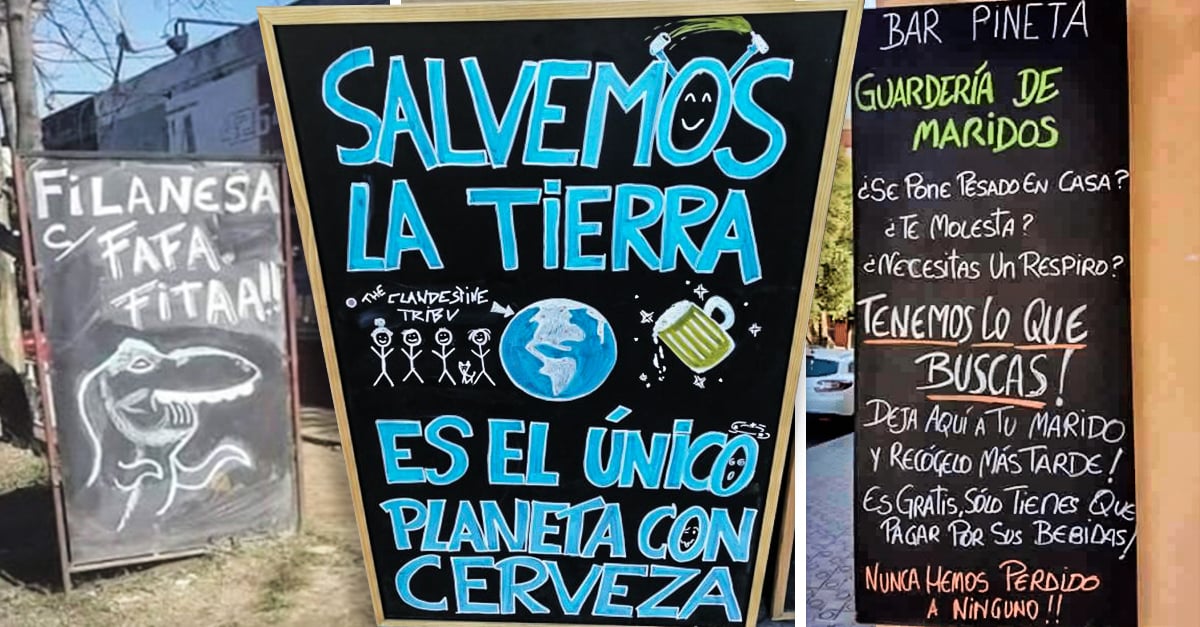 FiLANESA
c/ FAFA.
FiTAA!!
SALVEMOS
LA TiERRA
THE CLANDESTINE
TRIBU
ES EL ÚNiCO
PLANETA CON
CERVEZA
BAR PINETA
GUARDERÍA DE
MARIDOS
¿SE PONE PESADO EN CASA?
¿TE MOLESTA?
¿NECESITAS UN RESPIRO?
TENEMOS LO QUE
BUSCAS!
DEJA AQUÍ A TU MARIDO
Y RECÓGELO MÁS TARDE!
ES GRATIS, SÓLO TIENES QUE
PAGAR POR SUS BEBIDAS!
NUNCA HEMOS PERDIDO
A NINGUNO!!